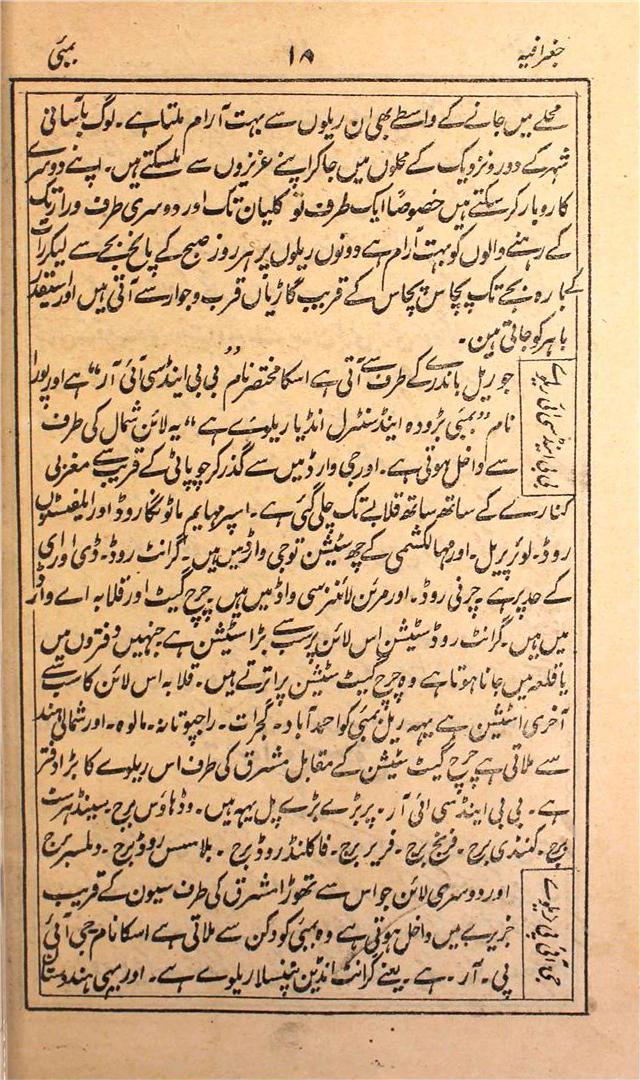 جغرافیہ ۱۸ بمبئی
محلے میں جانے کے واسطے بھی ان ریلوں سے بہت آرام ملتا ہے۔ لوگ بآسانی
شہر کے دور ونزدیک کے محلوں میں جاکر اپنے عزیزوں سے ملسکتے ہیں۔ اپنے دوسرے
کاروبار کرسکتے ہیں خصوصاً ایک طرف تو کلیان تک اور دوسری طرف ورار تک
کے رہنے والوں کو بہت آرام ہے دونوں ریلوں پر ہر روز صبح کے پانچ بجے سے لیکر رات
کے بارہ بجے تک پچاس پچاس کے قریب گاڑیاں قرب وجوار سے آتی ہیں اور اسیقدر
باہر کو جاتی ہین۔
بی بی اینڈ سی آئی ریلوے
جو ریل باندرے کے طرف سے آتی ہے اسکا مختصر نام ”بی بی اینڈ سی آئی آر“ ہے اور پورا
نام ”بمبئی بڑودہ اینڈ سنٹرل انڈیا ریلوے ہے“ یہ لائن شمال کی طرف
سے داخل ہوتی ہے۔ اور جی وارڈ میں سے گذر کر چوپاٹی کے قریب سے مغربی
کنارے کے ساتھ ساتھ قلابے تک چلی گئی ہے۔ اسپر مہایم ماٹونگا روڈ اور ایلفنسٹون
روڈ۔ لوئر پریل۔ اور مہالکشمی کے چھ سٹیشن تو جی وارڈ میں ہیں۔ گرانٹ روڈ۔ ڈی اور ای
کے حد پر ہے۔ چرنی روڈ۔ اور مرین لائنز سی واڈ میں ہیں۔ چرچ گیٹ اور قلابہ اے وارڈ
میں ہیں۔ گرانٹ روڈ سٹیشن اس لائن پر سب سے بڑا سٹیشن ہے جنہیں دفتروں میں
یا قلعہ میں جانا ہوتا ہے وہ چرچ گیٹ سٹیشن پر اترتے ہیں۔ قلابہ اس لائن کا سب سے
آخری اسٹیشن ہے یہہ ریل بمبئی کو احمد آباد۔ گجرات۔ راجپوتانہ۔ مالوہ۔ اور شمالی ہند
سے ملاتی ہے چرچ گیٹ سٹیشن کے مقابل مشرق کی طرف اس ریلوے کا بڑا دفتر
ہے۔ بی بی اینڈ سی ائی آر۔ پر بڑے بڑے پل یہہ ہیں۔ وڈ ہاؤس برج۔ سینڈہرسٹ
برج۔ کنیڈی برج۔ فرنچ برج۔ فریر برج۔ فاکلنڈ روڈ برج۔ بلاسس روڈ برج۔ ولمسبرج
جی آئی پی ریلوے
اور دوسری لائن جو اس سے تھوڑا مشرق کی طرف سیون کے قریب
جزیرے میں داخل ہوتی ہے وہ بمبئی کو دکن سے ملاتی ہے اسکا نام جی آئی
پی۔ آر۔ ہے۔ یعنے گرانٹ انڈین پننسلا ریلوے ہے۔ اور یہی ہندوستان